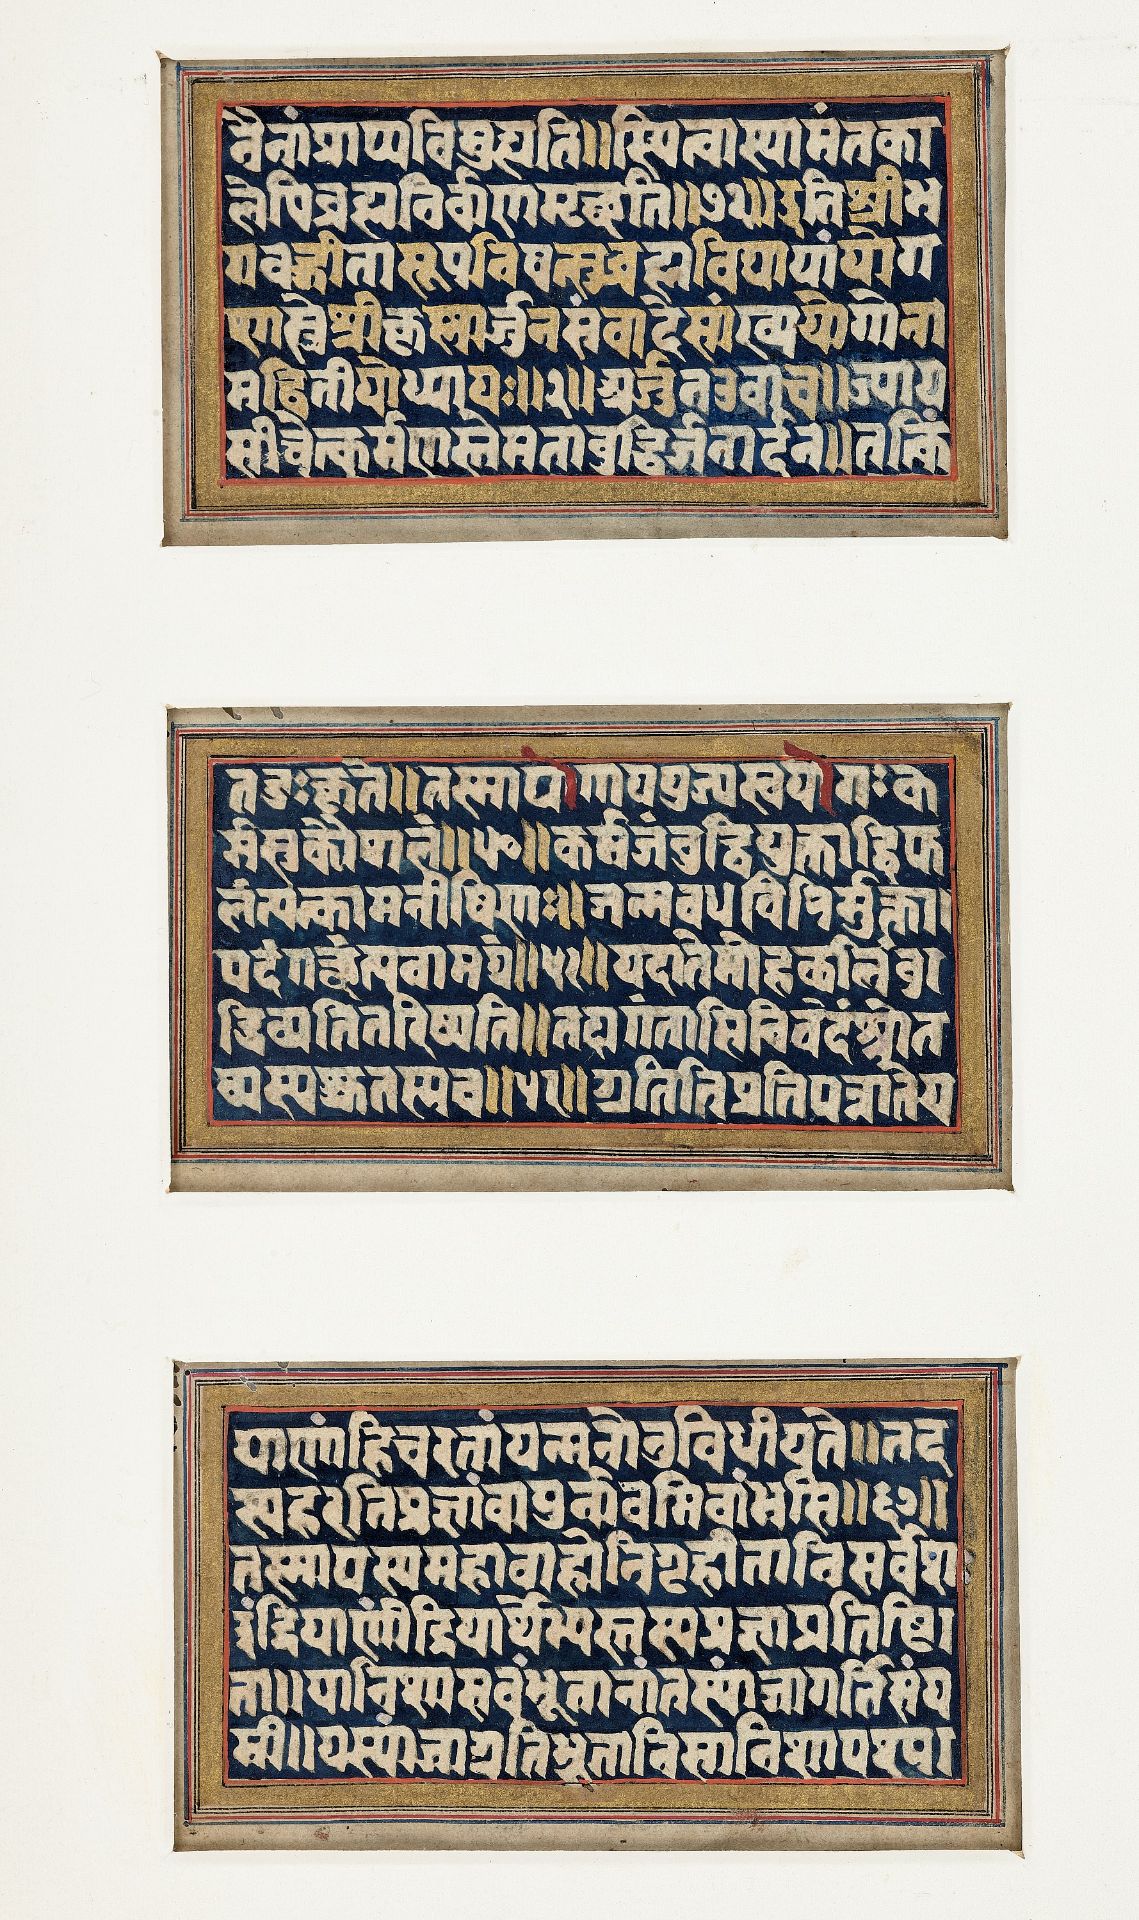 नैनांप्राप्यविमुह्यति॥स्थित्वास्यामंतका
लेपिब्रह्मनिर्वाणमृच्छति॥७२॥इतिश्रीभ
गवद्गीतासूपनिषत्सुब्रह्मविद्यायांयोग
शास्त्रेश्रीकृष्णार्जुनसंवादेसांख्ययोगोना
मद्वितीयोध्यायः॥२॥अर्जुनउवाच॥ज्याय
सीचेत्कर्मणस्तेमताबुद्धिर्जनार्दन॥तत्किं
तदुःकृते॥तस्माद्योगाययुज्यस्वयोगःक
र्मसुकौशलं॥५०॥कर्मजंबुद्धियुक्ताहिफ
लंत्यत्कामनीषिणः॥जन्मबंधविनिर्मुक्ता
पदंगर्छंत्यनामयं॥५१॥यदातेमोहकलिलंबु
द्धिर्व्यतितरिष्यति॥तदागंतासिनिर्वेदंश्रोत
व्यस्यश्रुतस्यच॥५२॥श्रुतिविप्रतिपन्नातेय
याणांहिचरतांयन्मनोनुविधीयते॥तद
स्यहरतिप्रज्ञांवायुर्नावमिवांभसि॥६७॥
तस्माद्यस्यमहाबाहोनिगृहीतानिसर्वशः
इंद्रियाणींद्रियार्थेभ्यस्तस्यप्रज्ञाप्रतिष्ठि
ता॥यानिशासर्वभूतानांतस्यांजागर्तिसंय
मी॥यस्यांजाग्रतिभूतानिसानिशापश्य